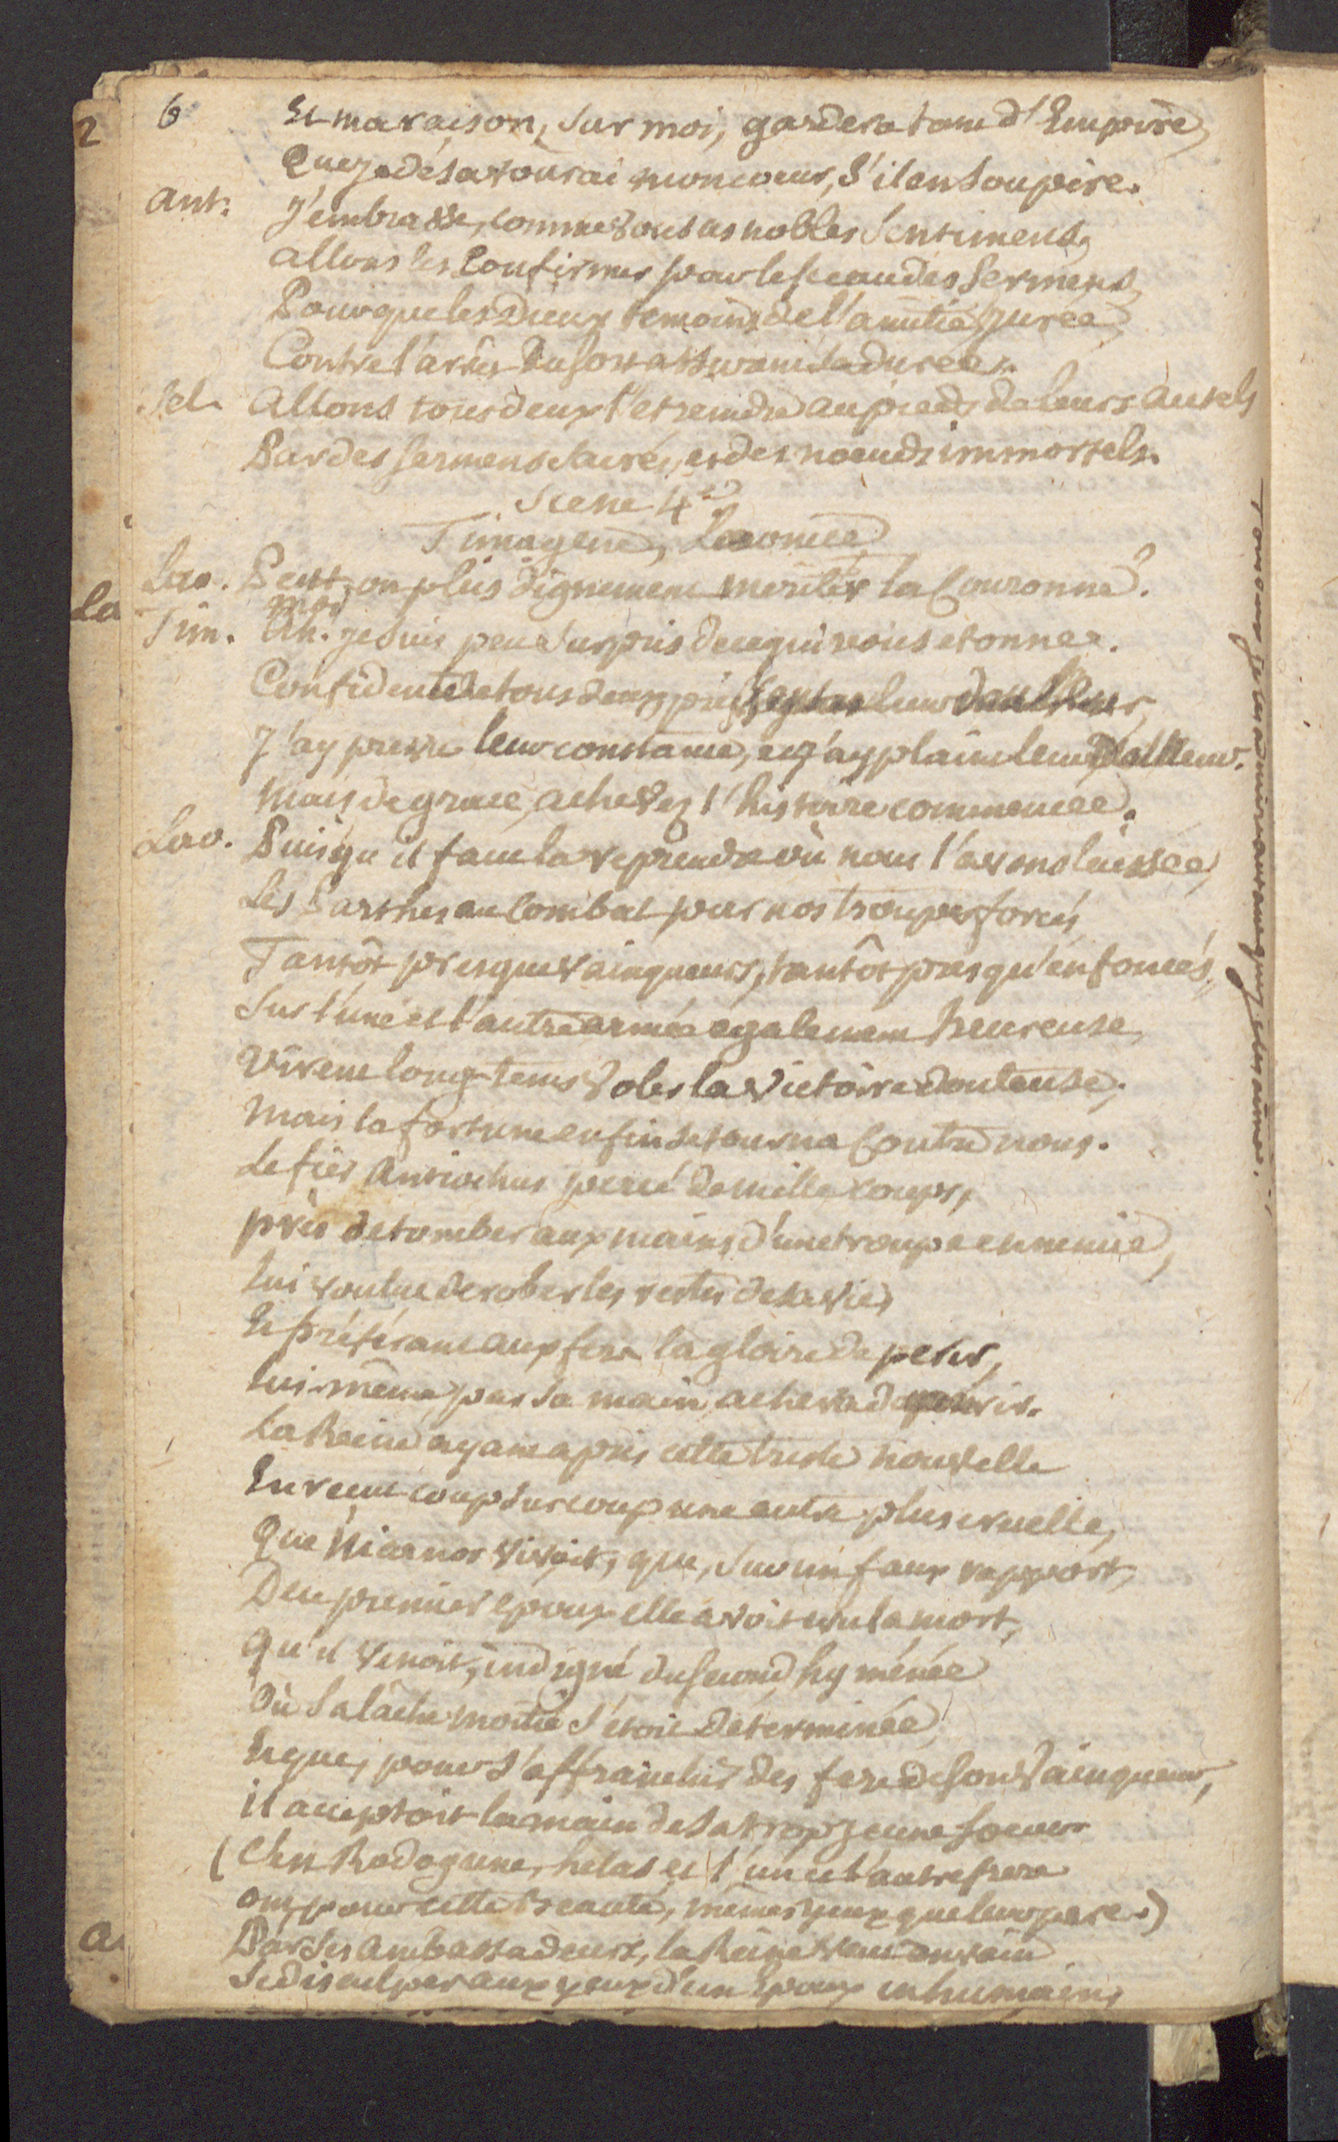 6
Et ma raison, sur moi, gardera tant d'Empire,
Que je désavourai mon coeur, s'il en soupire.
Ant. J'embrasse, comme vous ces nobles Sentimens,
allons les Confirmer par le sceau des sermens,
Pour que les Dieux temoins de l'amitié jurée,
Contre l'arrêt du sort assurent sa durée.
Sel. Allons tous deux l'etreindre au pieds de leurs autels
Par des sermens sacrés, et des noeuds immortels.
Scene 4e
Timagene, Laonice
Lao. Peut-on plus dignement meriter la Couronne?
Tim. Moi je suis peu surpris de ce qui vous etonne.
Confident de tous deux leur douleur,
J'ay prevu leur constance, et j'ay plaint leur malheur.
Mais de grace, achevez l'histoire commencée.
Lao. Puisqu'il faut la reprendre où nous l'avons laissée,
Les Parthes au Combat par nos troupes forcés,
Tantôt presque vainqueurs, tantôt presqu'enfoncés,
Sur l'une et l'autre armée egalement heureuse,
Virent long-tems voler la Victoire douteuse;
Mais la fortune enfin se tourna Contre nous.
Le fier Antiochus percé de mille coups,
près de tomber aux mains d'une troupe ennemie,
lui voulut derober les restes de sa vie,
Et préférant aux fers la gloire de perir,
lui-même par sa main acheva de mourir.
La Reine ayant apris cette triste nouvelle
En reçut coup sur coup une autre plus cruelle,
Que Nicanor vivoit, que, sur un faux rapport,
De ce premier epoux elle avoit cru la mort,
Qu'il venoit, indigné du second hyménée
Où sa lâche moitié s'étoit déterminée,
Et que, pour s'affranchir des fers de son vainqueur,
il acceptoit la main de sa trop jeune soeur
(C'est Rodogune, helas et l'un et l'autre frere
ont, pour cette Beauté, mêmes yeux que leur pere.)
Par ses ambassadeurs, la Reine veut en vain
Se disculper aux yeux d'un Epoux inhumain,
2
La